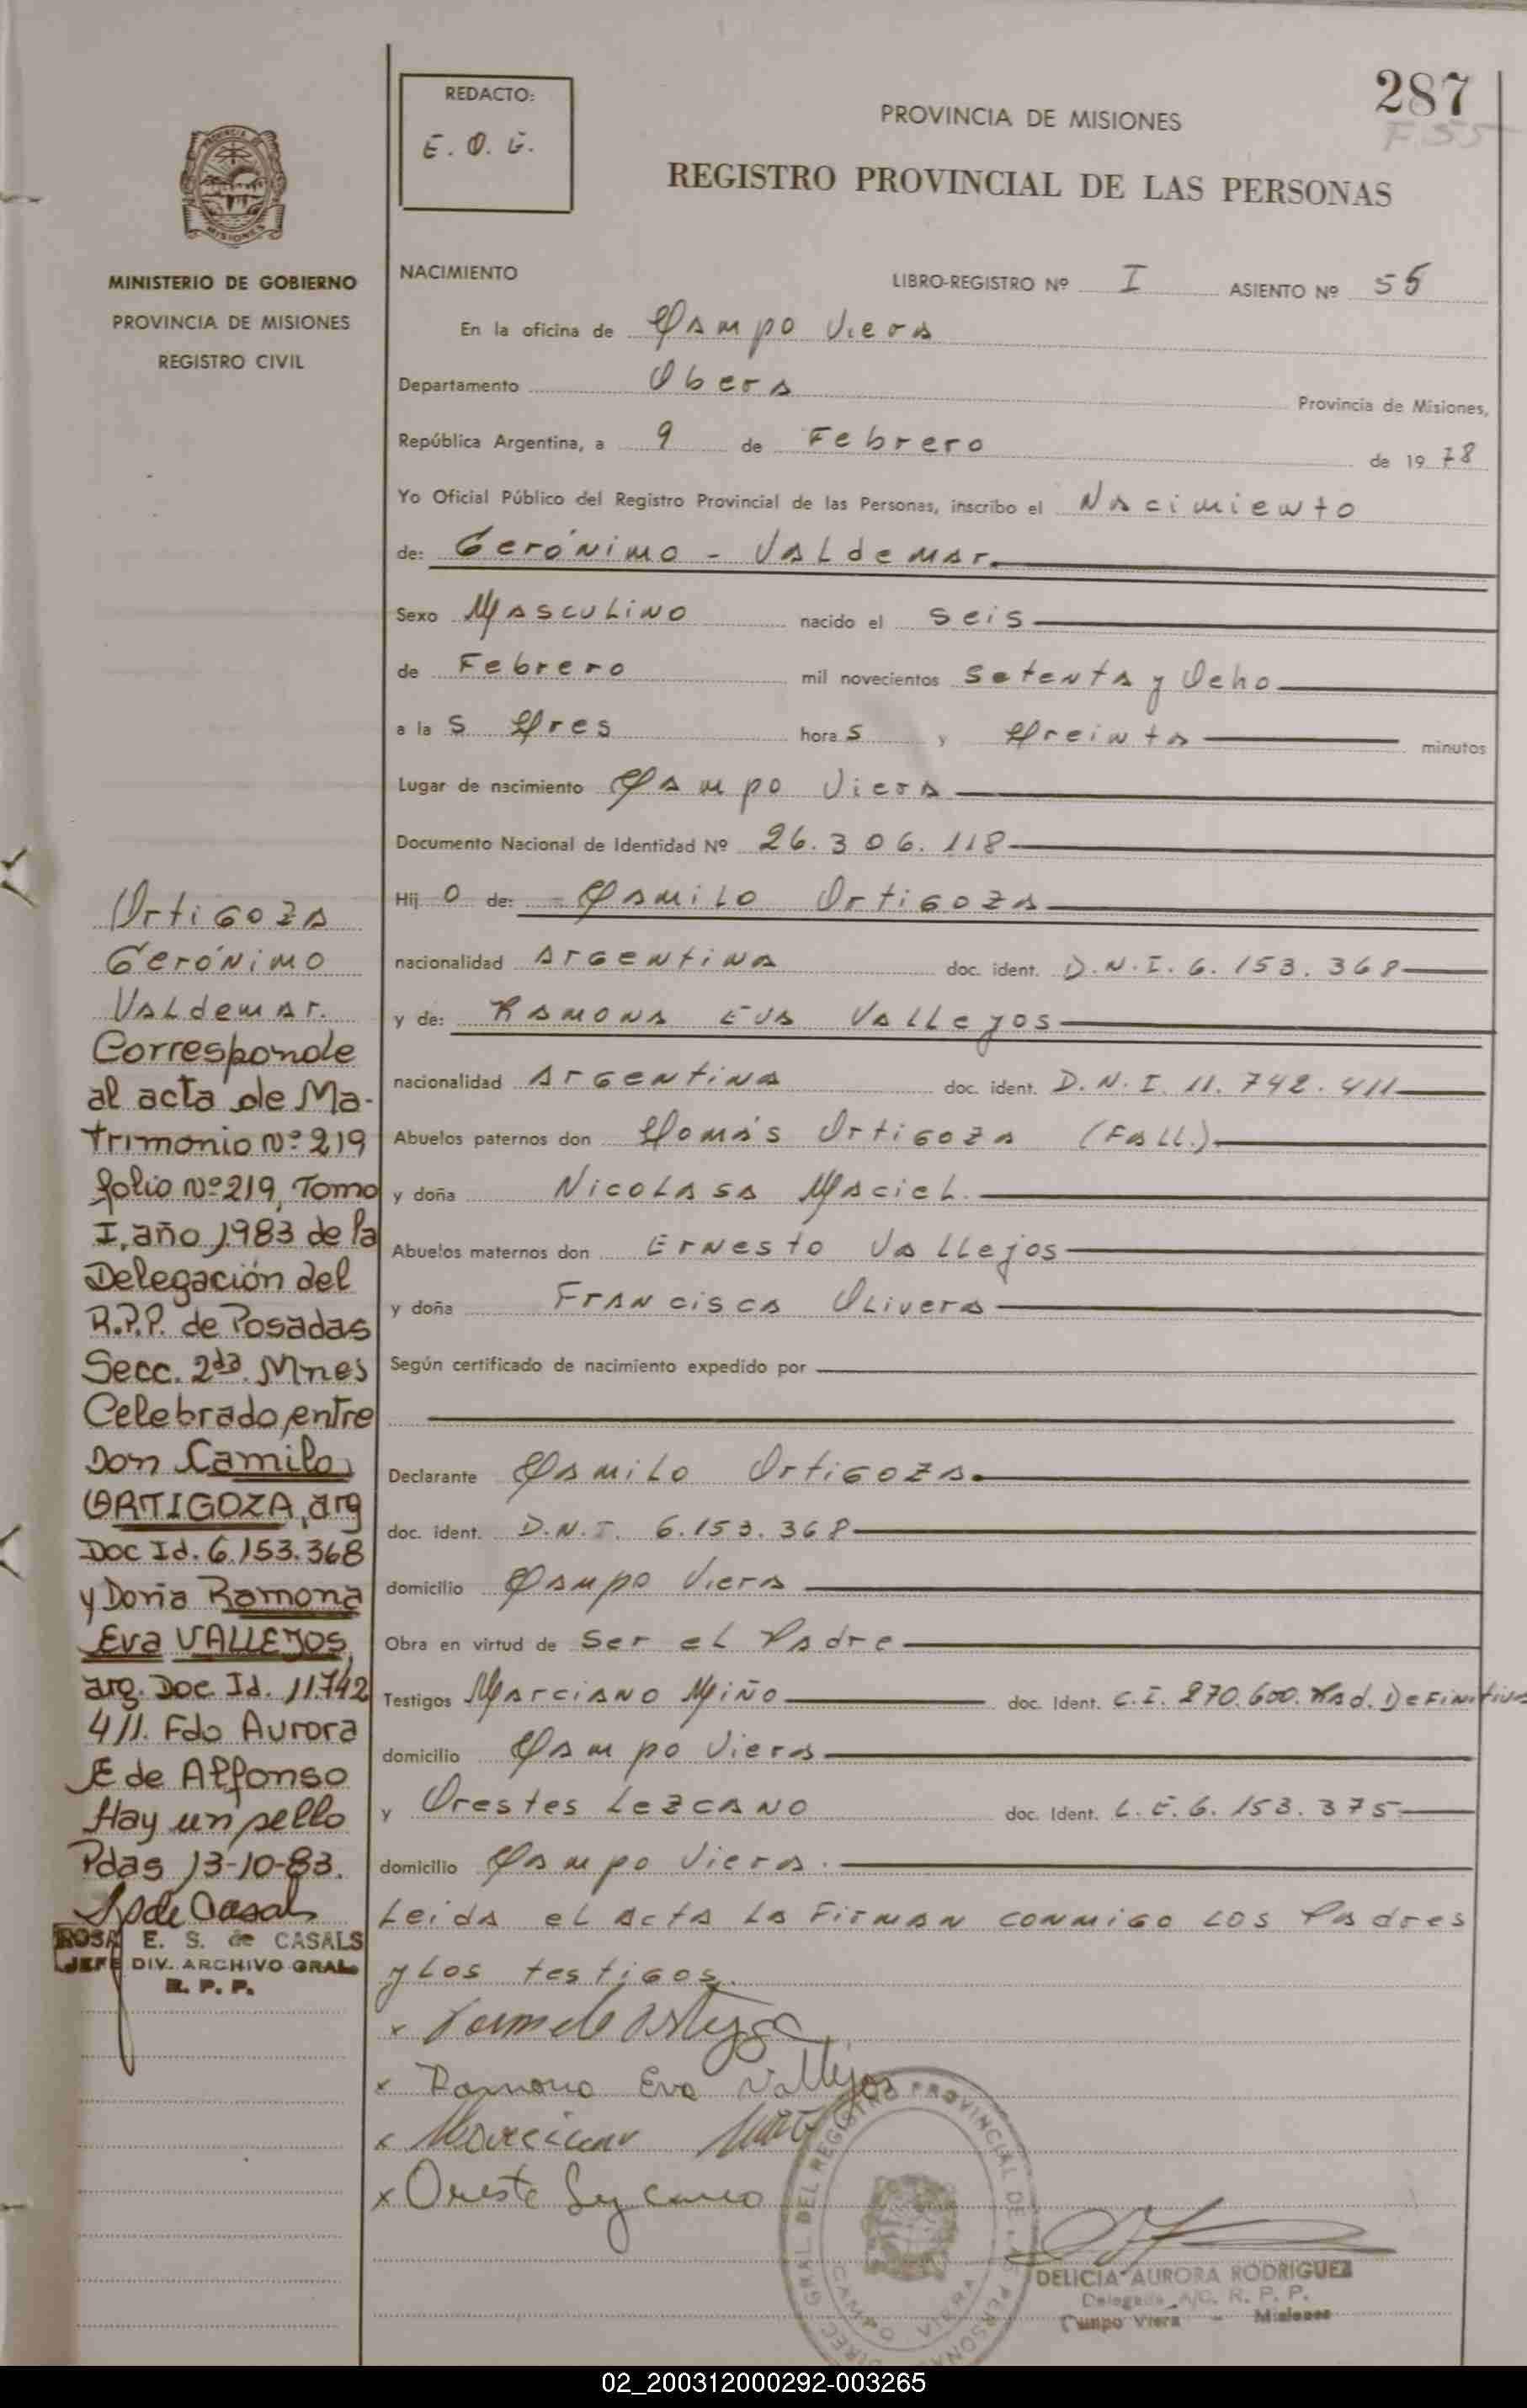 287
F 55
REDACTO:
E. O. G.
PROVINCIA DE MISIONES
REGISTRO PROVINCIAL DE LAS PERSONAS
PROVINCIA DE
MISIONES
MINISTERIO DE GOBIERNO
PROVINCIA DE MISIONES
REGISTRO CIVIL
NACIMIENTO
LIBRO-REGISTRO Nº I ASIENTO Nº 55
En la oficina de Campo Viera
Departamento Obera Provincia de Misiones,
República Argentina, a 9 de Febrero de 1978
Yo Oficial Público del Registro Provincial de las Personas, inscribo el Nacimiento
de: Gerónimo - Valdemar.
Sexo Masculino nacido el seis
de Febrero mil novecientos setenta y Ocho
a las Tres horas y Treinta minutos
Lugar de nacimiento Campo Viera
Documento Nacional de Identidad Nº 26.306.118
Hijo de: - Camilo Ortigoza
nacionalidad Argentina doc. ident. D.N.I. 6.153.368
y de: Ramona Eva Vallejos
nacionalidad Argentina doc. ident. D.N.I. 11.742.411
Abuelos paternos don Tomás Ortigoza (Fall.)
y doña Nicolasa Maciel.
Abuelos maternos don Ernesto Vallejos
y doña Francisca Olivera
Según certificado de nacimiento expedido por
Declarante Camilo Ortigoza.
doc. ident. D.N.I. 6.153.368
domicilio Campo Viera
Obra en virtud de ser el Padre
Testigos Marciano Miño doc. Ident. C.I. 270.600. Rad. Definitiva
domicilio Campo Viera
y Orestes Lezcano doc. Ident. L.E. 6.153.375
domicilio Campo Viera.
Leida el acta la Firman conmigo los Padres
y los testigos.
x Camilo Ortigoza
x Ramona Eva Vallejos
x Marciano Miño
x Oreste Lezcano
Ortigoza
Gerónimo
Valdemar.
Corresponde
al acta de Ma-
trimonio Nº 219
folio Nº 219, Tomo
I, año 1983 de la
Delegación del
R.P.P. de Posadas
Secc. 2da. Mnes
Celebrado entre
Don Camilo
ORTIGOZA, arg
Doc Id. 6.153.368
y Doña Ramona
Eva VALLEJOS,
arg. Doc Id. 11.742
411. Fdo Aurora
E de Alfonso
Hay un sello
Pdas 13-10-83.
de Casals
ROSA E. S. de CASALS
JEFE DIV. ARCHIVO GRAL.
R. P. P.
DIREC GRAL DEL REGISTRO PROVINCIAL DE LAS PERSONAS
CAMPO VIERA
DELICIA AURORA RODRIGUEZ
Delegada A/C. R. P. P.
Campo Viera - Misiones
02_200312000292-003265